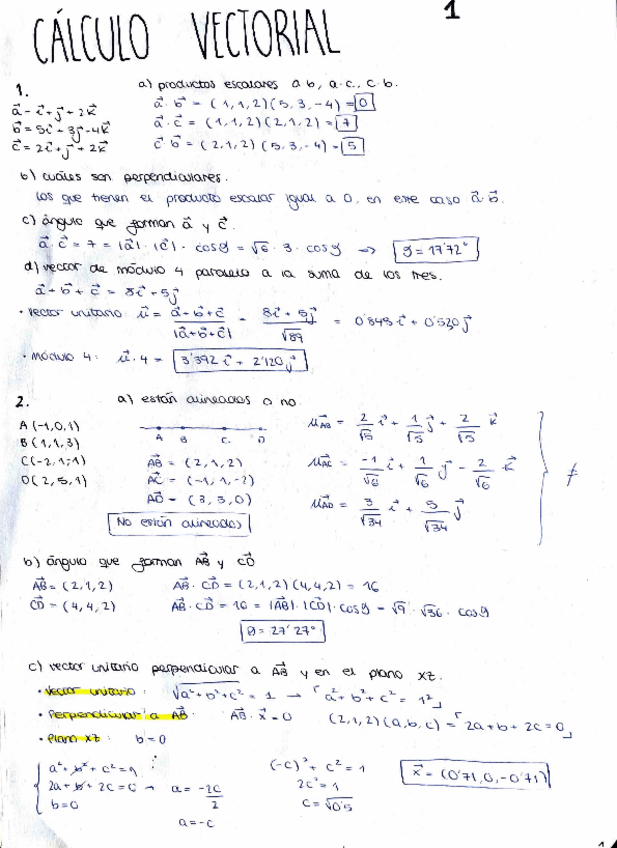 1
CÁLCULO VECTORIAL
1.
a⃗ = i⃗ + j⃗ + 2k⃗
b⃗ = 5i⃗ + 3j⃗ - 4k⃗
c⃗ = 2i⃗ + j⃗ + 2k⃗
a) productos escalares a·b, a·c, c·b.
a⃗·b⃗ = (1,1,2)(5,3,-4) = 0
a⃗·c⃗ = (1,1,2)(2,1,2) = 7
c⃗·b⃗ = (2,1,2)(5,3,-4) = 5
b) cuáles son perpendiculares.
Los que tienen el producto escalar igual a 0, en este caso a⃗·b⃗.
c) ángulo que forman a⃗ y c⃗.
a⃗·c⃗ = 7 = |a⃗|·|c⃗|· cos φ = √6 · 3 · cos φ => φ = 17'72°
d) vector de módulo 4 paralelo a la suma de los tres.
a⃗ + b⃗ + c⃗ = 8i⃗ + 5j⃗
· Vector unitario u⃗ = (a⃗+b⃗+c⃗)/|a⃗+b⃗+c⃗| = (8i⃗ + 5j⃗)/√89 = 0'848i⃗ + 0'530j⃗
· módulo 4: u⃗·4 = 3'392i⃗ + 2'120j⃗
2.
a) están alineados o no
A(-1,0,1)
B(1,1,3)
C(-2,1,-1)
D(2,5,1)
A B C D
AB⃗ = (2,1,2)
AC⃗ = (-1,1,-2)
AD⃗ = (3,5,0)
No están alineados
u⃗AB = 2/√5 i⃗ + 1/√5 j⃗ + 2/√5 k⃗
u⃗AC = -1/√6 i⃗ + 1/√6 j⃗ - 2/√6 k⃗
u⃗AD = 3/√34 i⃗ + 5/√34 j⃗
≠
b) ángulo que forman AB⃗ y CD⃗
AB⃗ = (2,1,2)
CD⃗ = (4,4,2)
AB⃗·CD⃗ = (2,1,2)(4,4,2) = 16
AB⃗·CD⃗ = 16 = |AB⃗|·|CD⃗|·cos φ = √9 · √36 · cos φ
θ = 27'27°
c) vector unitario perpendicular a AB⃗ y en el plano xz.
· Vector unitario: √a²+b²+c² = 1 → a²+b²+c² = 1²
· Perpendicular a AB⃗: AB⃗·x⃗ = 0 (2,1,2)(a,b,c) = 2a+b+2c=0
· Plano xz: b=0
a²+b²+c²=1
2a+b+2c=0 → a = -2c/2
b=0
a=-c
(-c)²+c²=1
2c²=1
c=√0'5
x⃗ = (0'71, 0, -0'71)
1